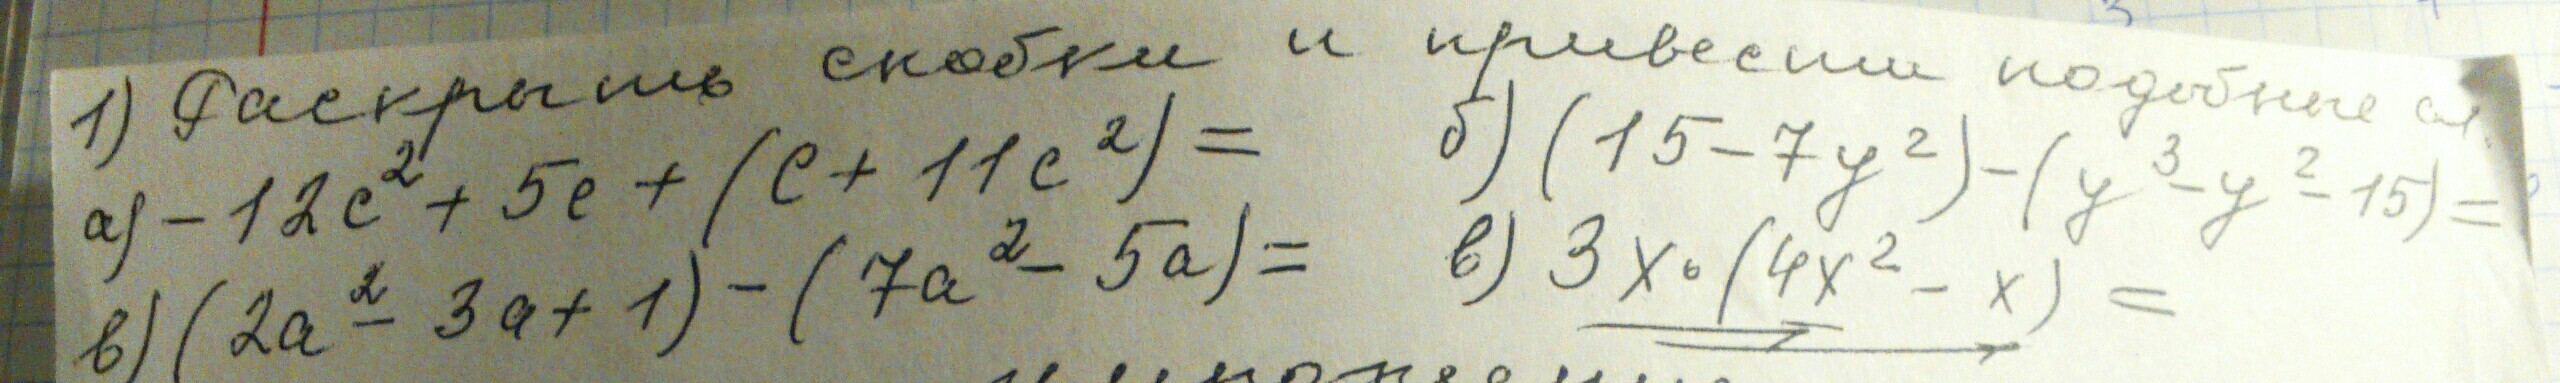 1) Раскрыть скобки и привести подобные сл.
а) -12c² + 5c + (c + 11c²) = б) (15 - 7y²) - (y³ - y² - 15) =
в) (2a² - 3a + 1) - (7a² - 5a) = в) 3x · (4x² - x) =